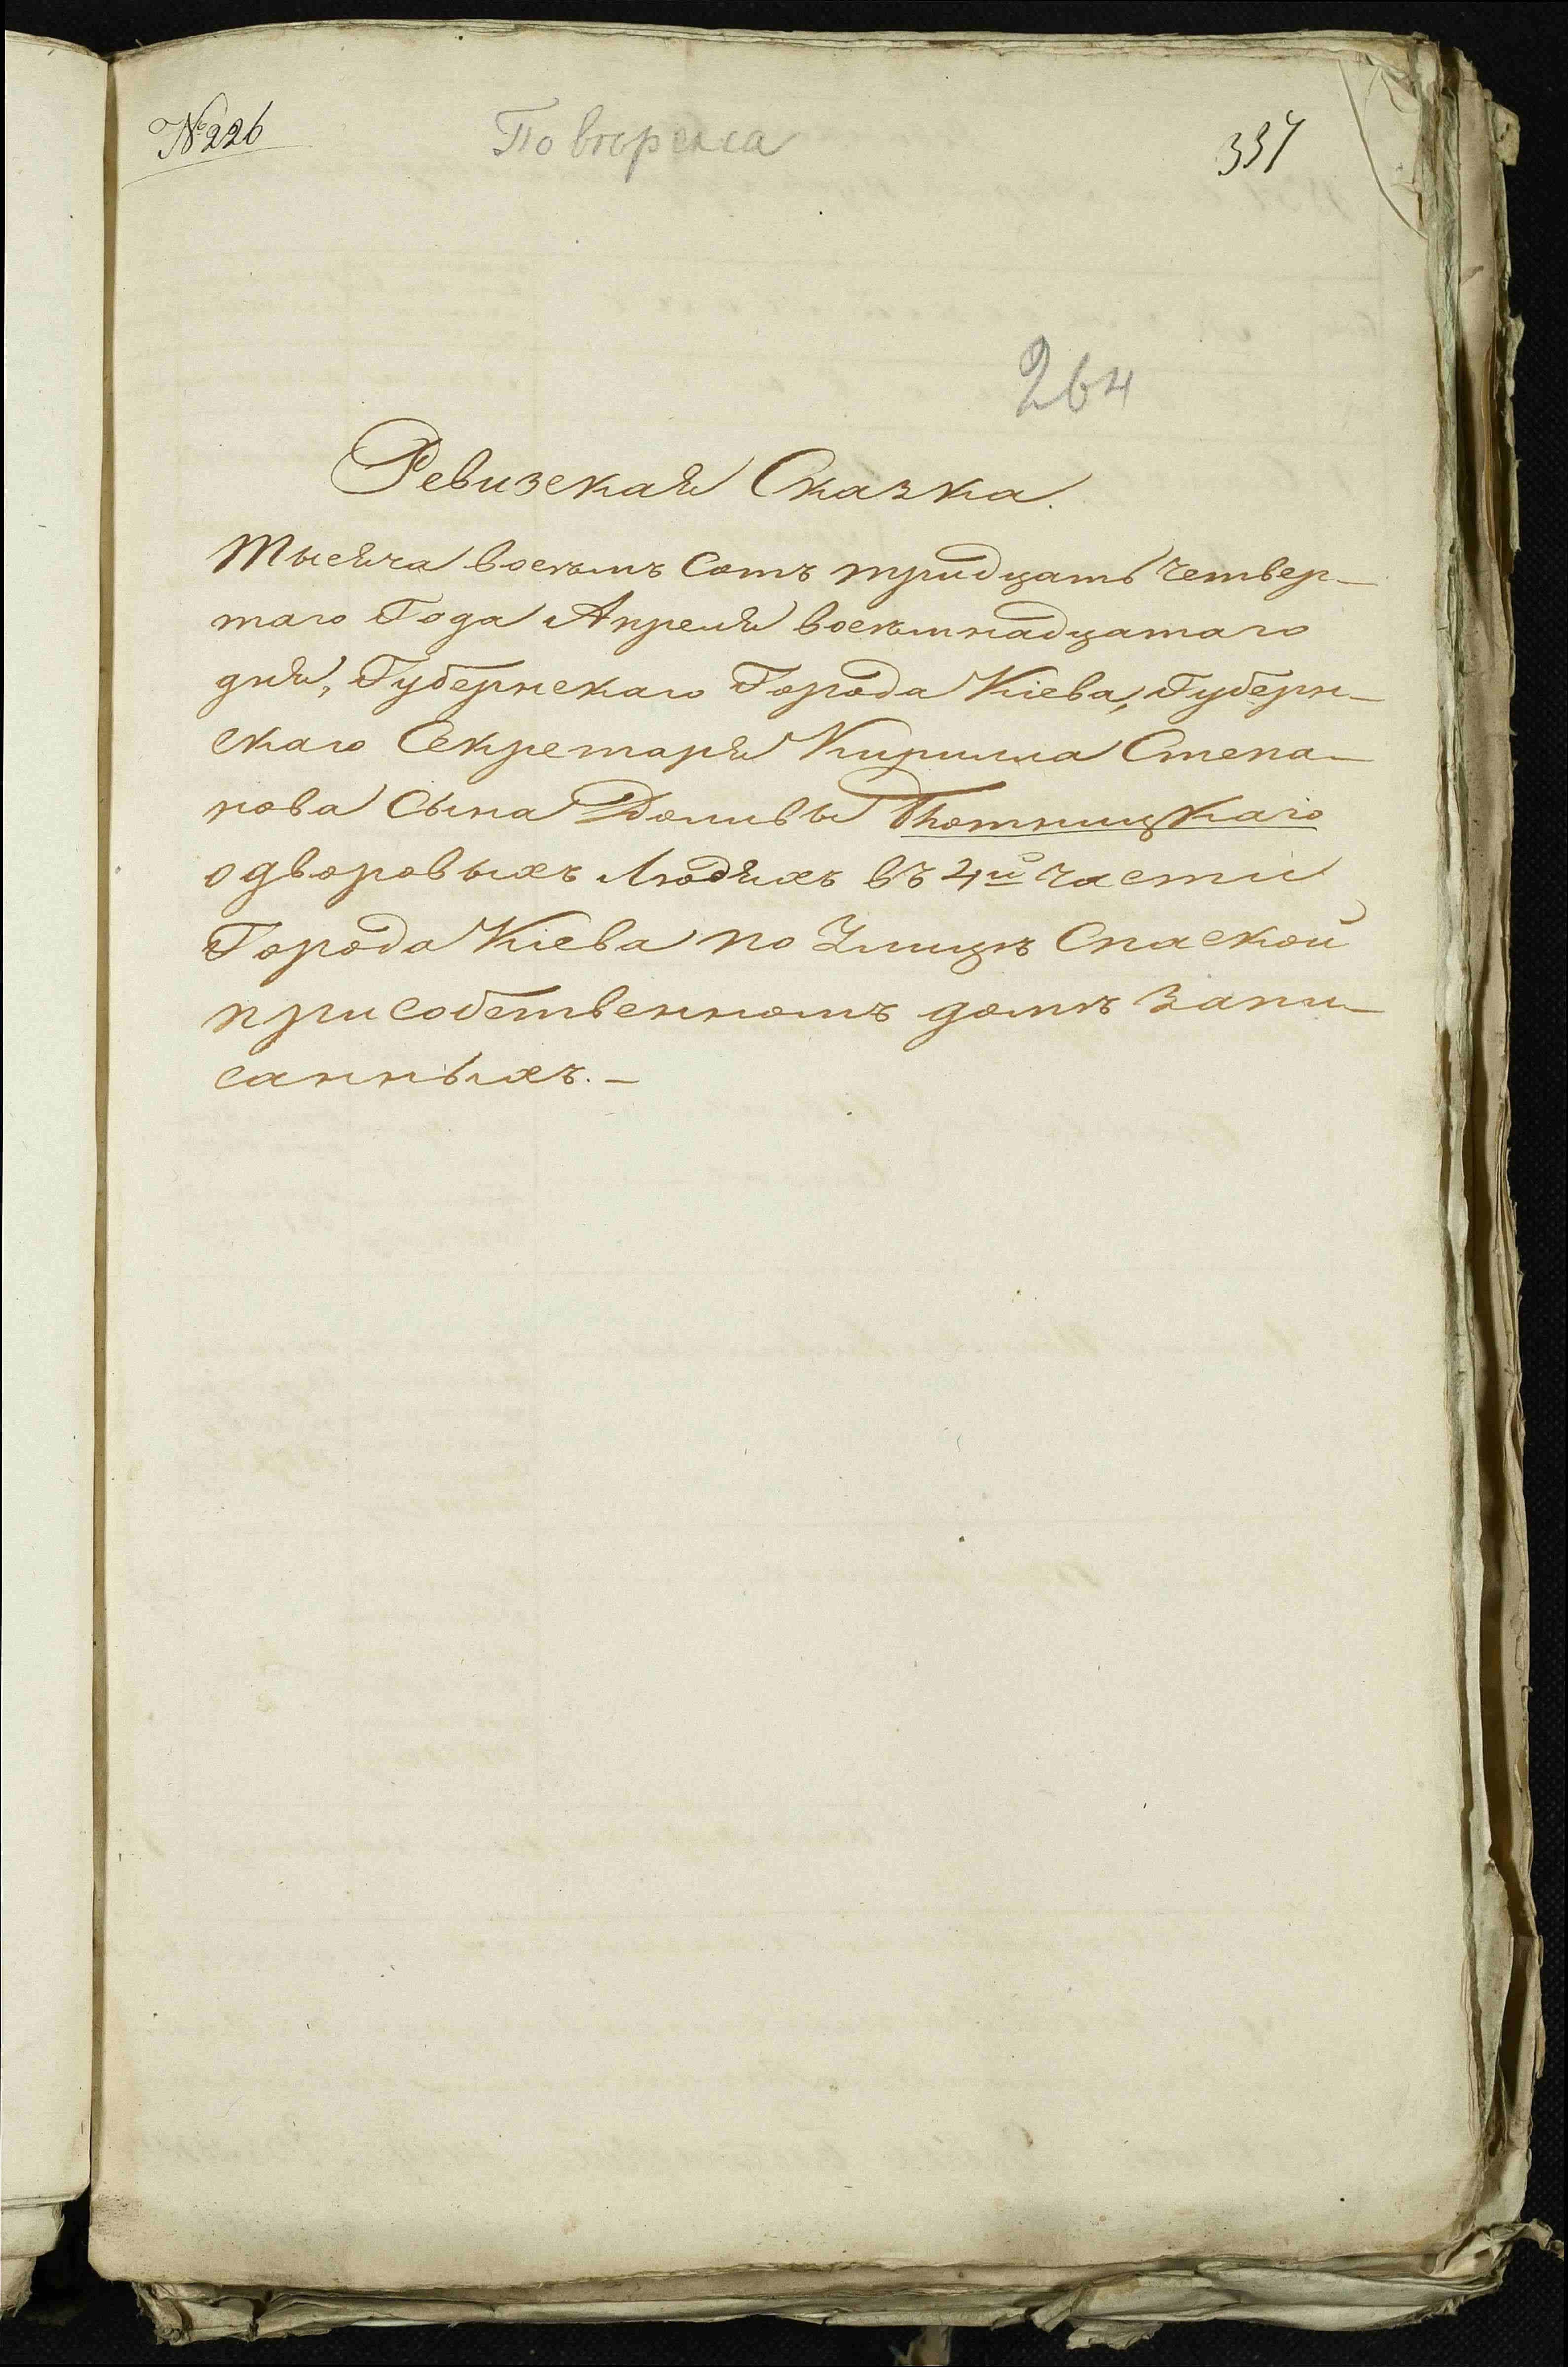 № 226
Повторена
337
264
Ревизская Сказка.
Тысяча восемъ Сотъ тридцать Четвер-
таго Года Апреля восемнадцатаго
дня, Губернскаго Города Кіева, Губерн-
скаго Секретаря Кирилла Степа-
нова Сына Доливы Плотницкаго
о дворовыхъ Людяхъ въ 4й Части
Города Кіева по Улицѣ Спаской
при собственномъ домѣ запи-
санныхъ.-